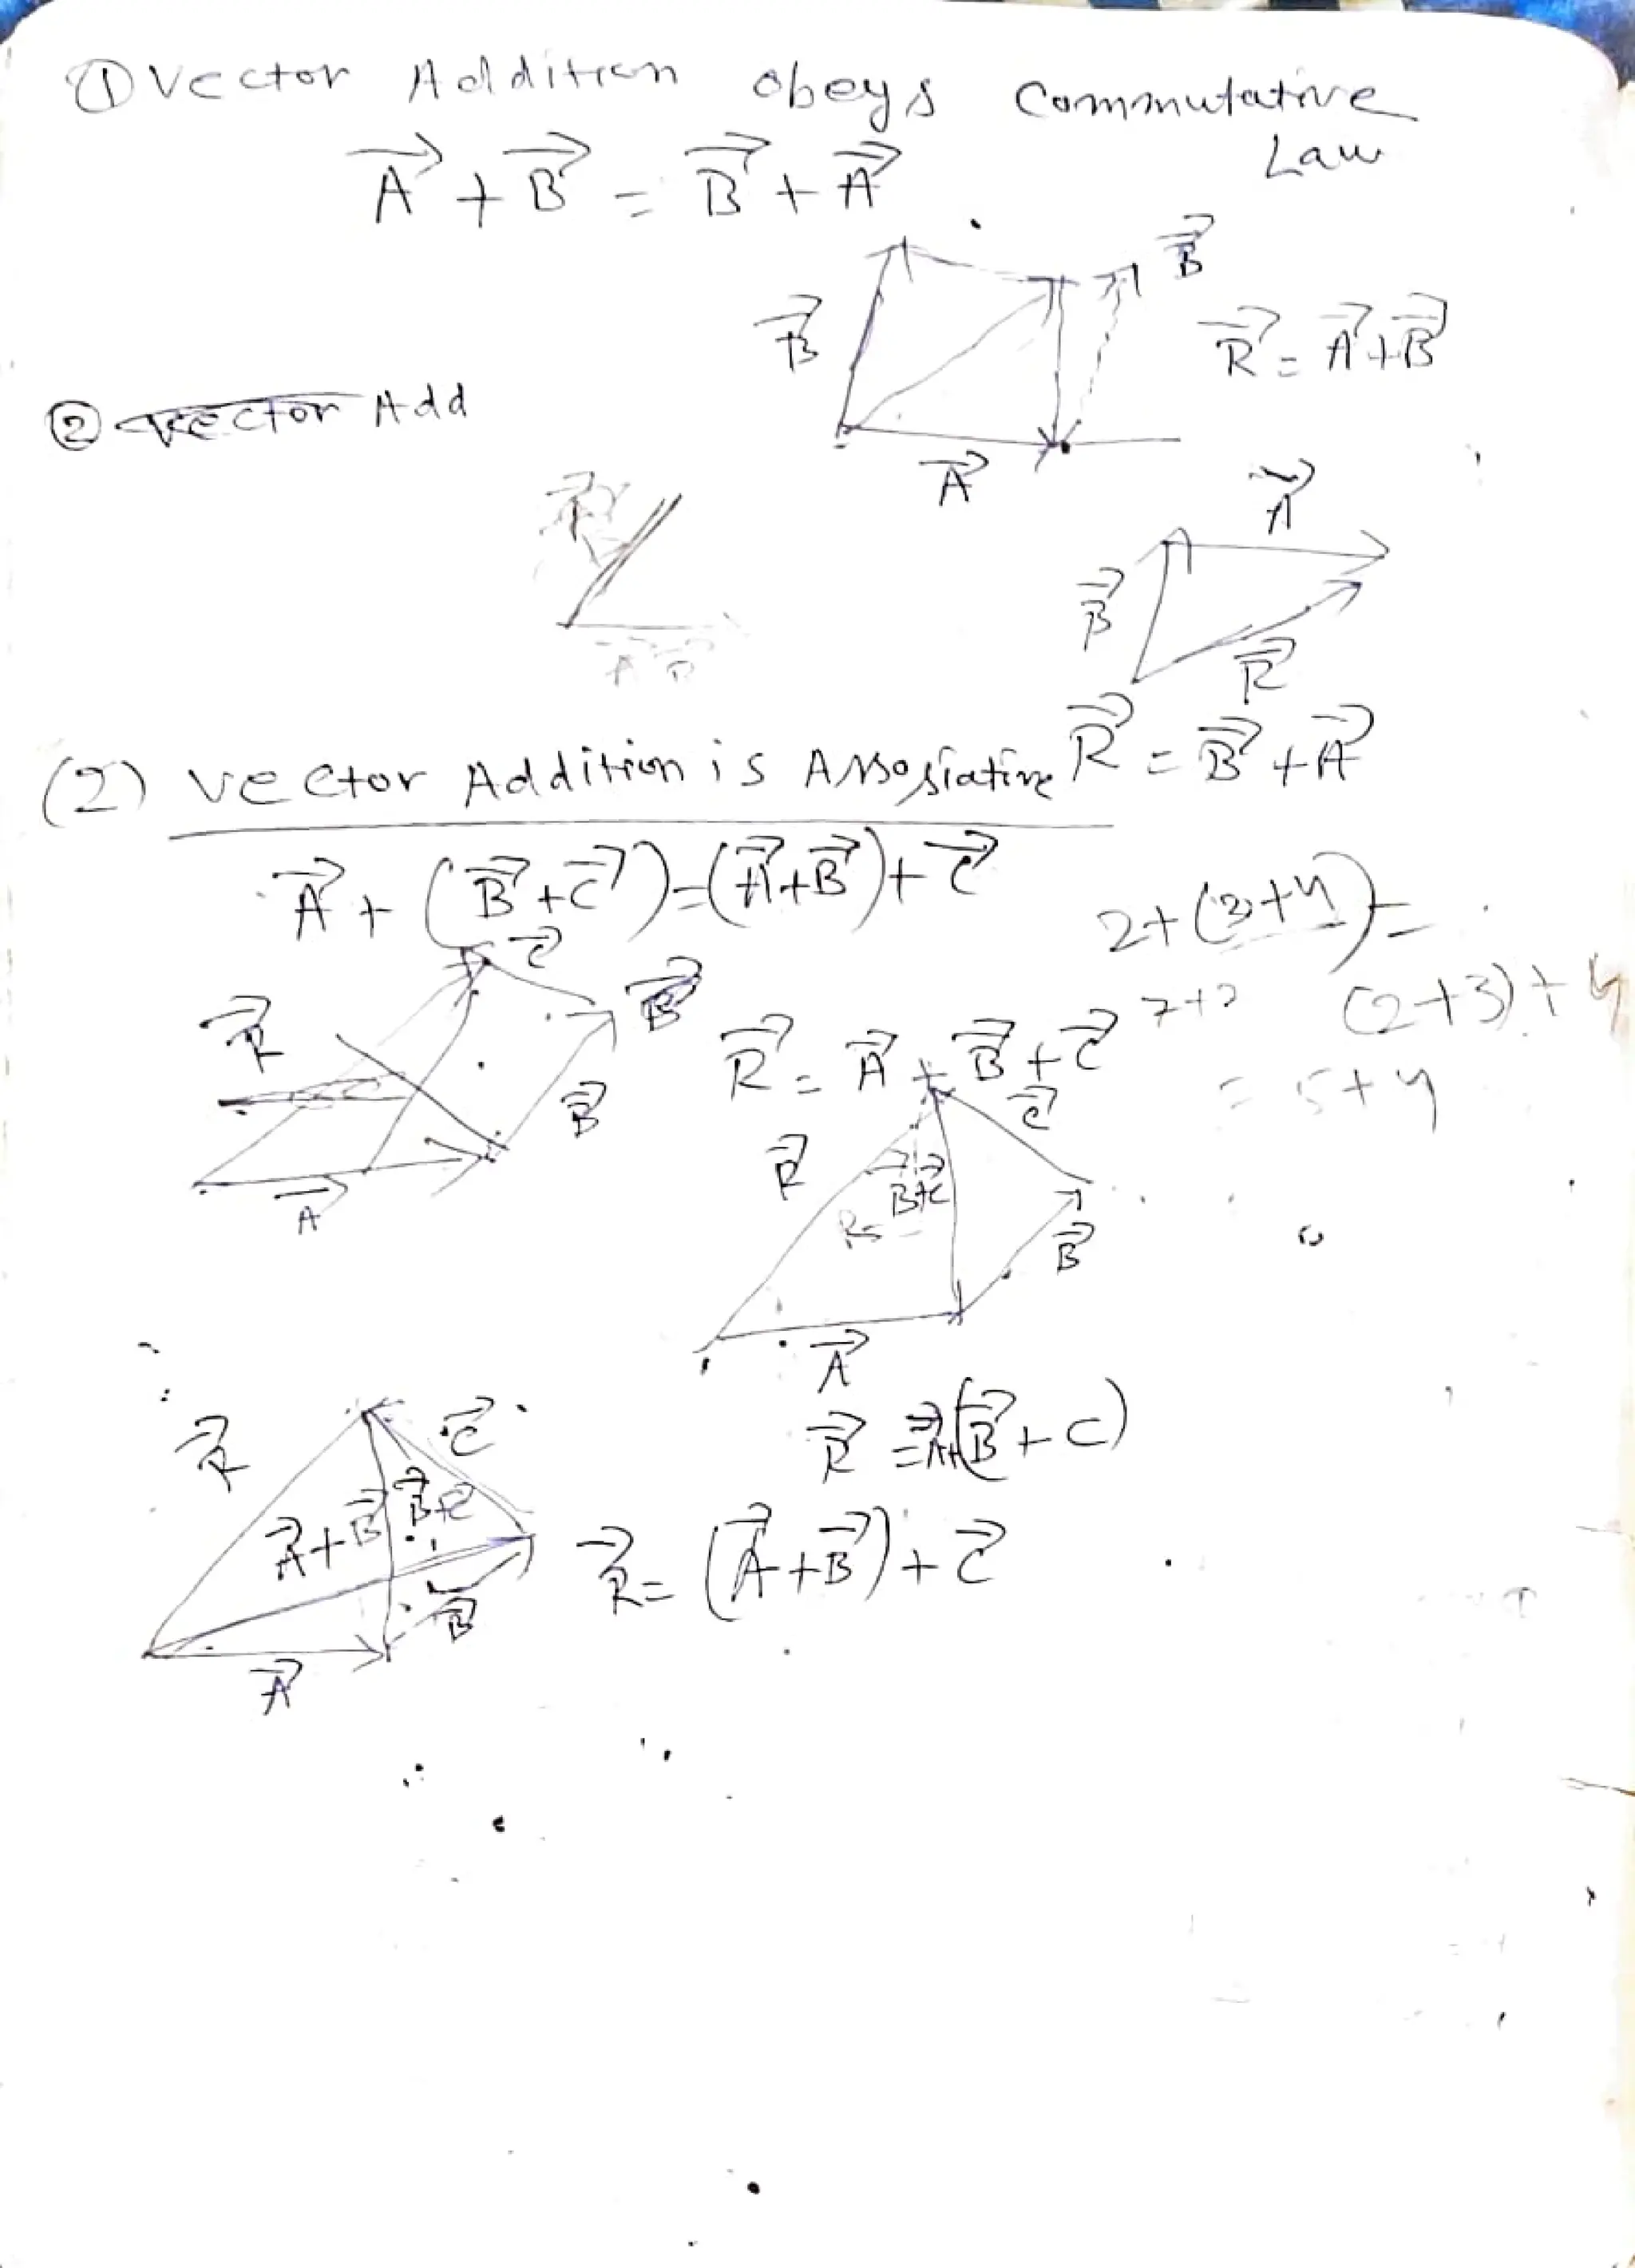 ① Vector Addition obeys Commutative
Law
A⃗ + B⃗ = B⃗ + A⃗
B⃗
B⃗
R⃗ = A⃗ + B⃗
A⃗
② Vector Add
A⃗
B⃗
R⃗
R⃗ = B⃗ + A⃗
(2) Vector Addition is Assosiative
A⃗ + (B⃗ + C⃗) = (A⃗ + B⃗) + C⃗
2+(3+4) =
7+2
(2+3)+4
= 5+4
C⃗
B⃗
R⃗
B⃗
A⃗
R⃗ = A⃗ + B⃗ + C⃗
C⃗
R⃗
B⃗+C⃗
B⃗
A⃗
R⃗ = A⃗+(B⃗ + C)
R⃗
C⃗
A⃗+B⃗
B⃗+C⃗
B⃗
A⃗
R⃗ = (A⃗+B⃗)+C⃗